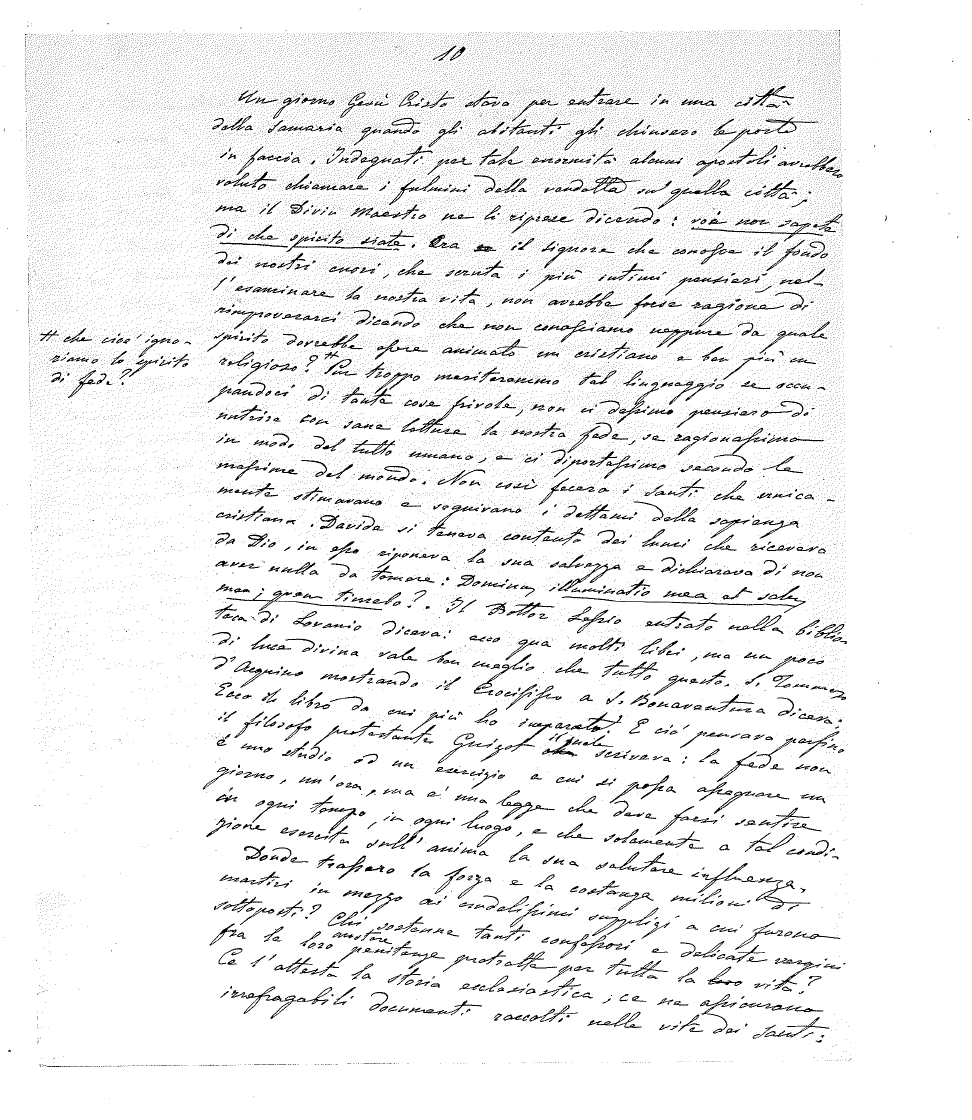 10
Un giorno Gesù Cristo stava per entrare in una città
della Samaria quando gli abitanti gli chiusero le porte
in faccia. Indegnati per tale enormità alcuni apostoli avrebbero
voluto chiamare i fulmini della vendetta su quella città;
ma il Divin Maestro ne li riprese dicendo: voi non sapete
di che spirito siate. Ora il signore che conosce il fondo
dei nostri cuori, che scruta i più intimi pensieri, nel-
l'esaminare la nostra vita, non avrebbe forse ragione di
rimproverarci dicendo che non conosciamo neppure da quale
spirito dovrebbe essere animato un cristiano e ben più un
religioso? # Pur troppo meriteremmo tal linguaggio se occu-
# che cioè igno-
riamo lo spirito
di fede?
pandoci di tante cose frivole, non ci dessimo pensiero di
nutrire con sane letture la nostra fede, se ragionassimo
in modo del tutto umano, e ci diportassimo secondo le
massime del mondo. Non così fecero i santi che unica-
mente stimavano e seguivano i dettami della sapienza
cristiana. Davide si teneva contento dei lumi che riceveva
da Dio, in esso riponeva la sua salvezza e dichiarava di non
aver nulla da temere: Dominus illuminatio mea et salus
mea; quem timebo?. Il Dottor Lessio entrato nella biblio-
teca di Lovanio diceva: ecco qua molti libri, ma un poco
di luce divina vale ben meglio che tutto questo. S. Tommaso
d'Acquino mostrando il Crocifisso a S. Bonaventura diceva:
Ecco il libro da cui più ho imparato. E ciò pensava persino
il filosofo protestante Guizot il quale scriveva: la fede non
è uno studio od un esercizio a cui si possa assegnare un
giorno, un'ora, ma è una legge che deve farsi sentire
in ogni tempo, in ogni luogo, e che solamente a tal condi-
zione esercita sull'anima la sua salutare influenza.
Donde trassero la forza e la costanza milioni di
martiri in mezzo ai crudelissimi supplizi a cui furono
sottoposti? Chi sostenne tanti confessori e delicate vergini
fra le loro austere penitenze protratte per tutta la loro vita?
Ce l'attesta la storia ecclesiastica, ce ne assicurano
irrefragabili documenti raccolti nelle vite dei santi: